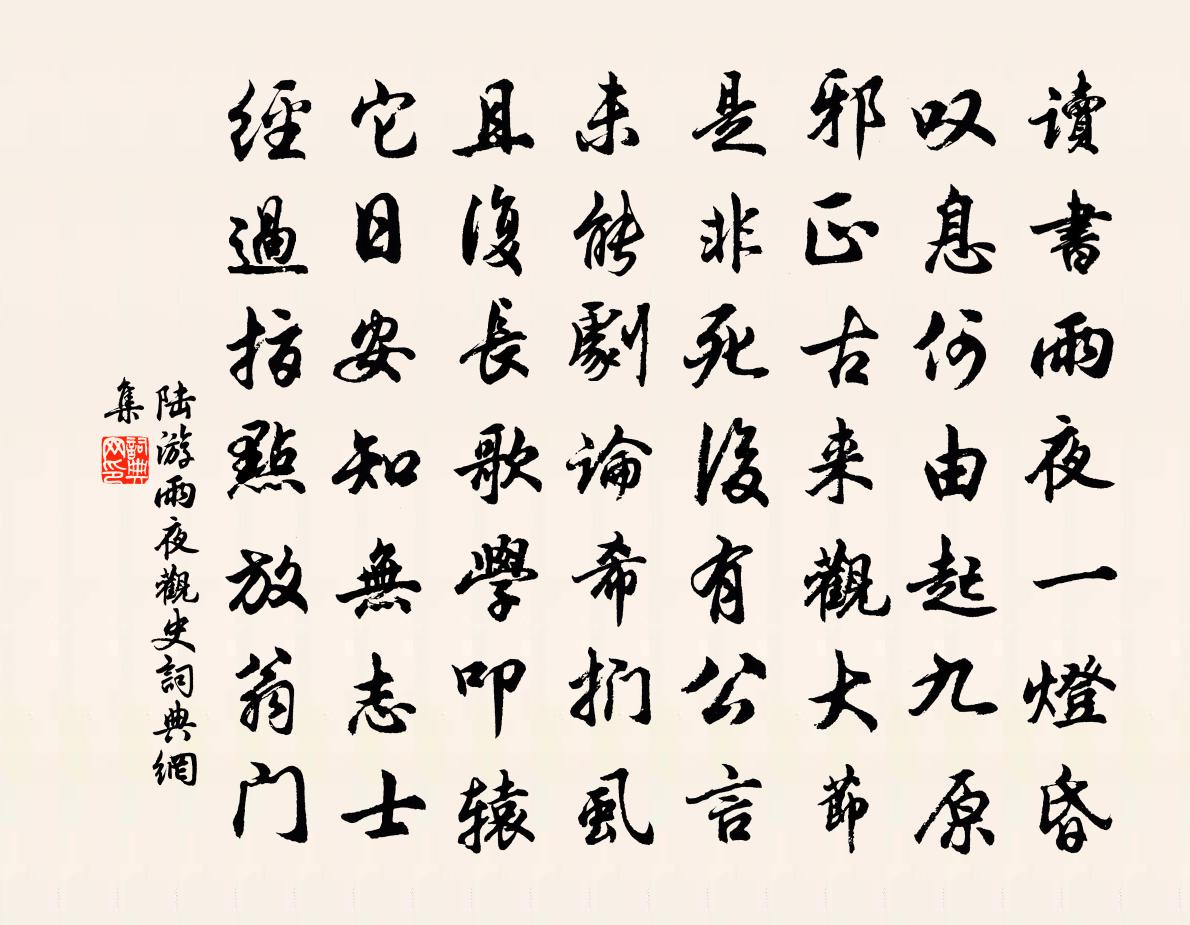 讀書雨夜一燈昏
叹息何由起九原
邪正古来觀大節
是非死後有公言
未能劇論希捫虱
且復長歌學叩辕
它日安知無志士
經過指點放翁门
陆游雨夜觀史詞典網
集
詞典
网印